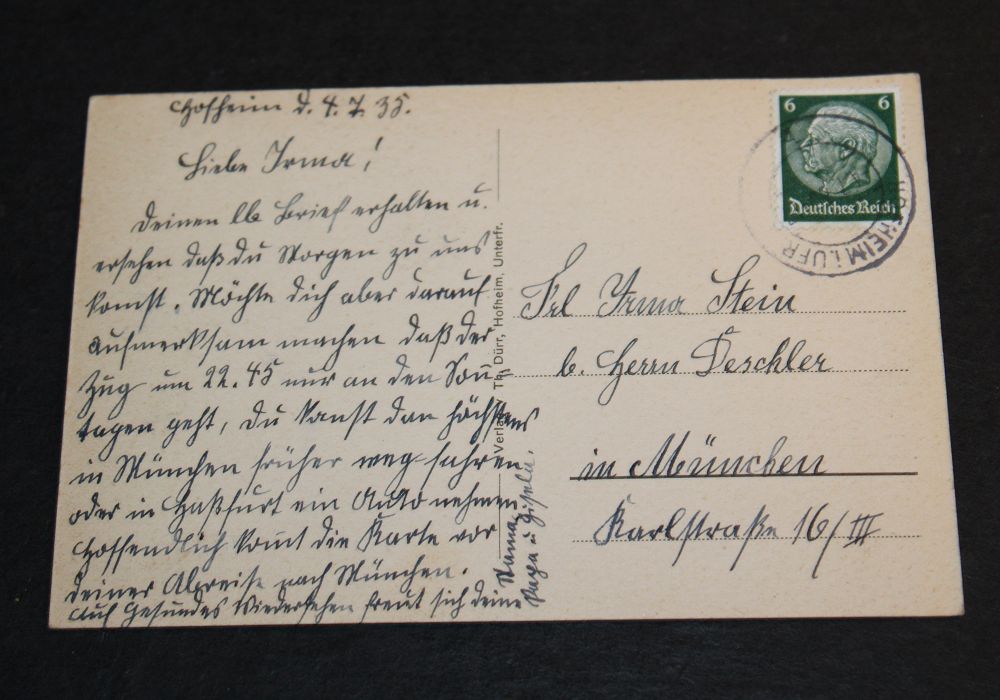 Hofheim d. 4.7.35.
Liebe Irma!
Deinen lb Brief erhalten u.
ersehen daß du Morgen zu uns
komst. Möchte dich aber darauf
aufmerksam machen daß der
Zug um 22.45 nur an den Son-
tagen geht, du kanst dan höchstens
in München früher weg fahren
oder in Haßfurt ein Auto nehmen
Hoffendlich komt die Karte vor
deiner Abreise nach München.
Auf Gesundes Wiedersehen freut sich deine
Mama
Papa u Gisela.
Verlag v. Th. Dürr, Hofheim, Unterfr.
6 6
Deutsches Reich
HOFHEIM (UFR
Frl Irma Stein
b. Herrn Deschler
in München
Karlstraße 16/III